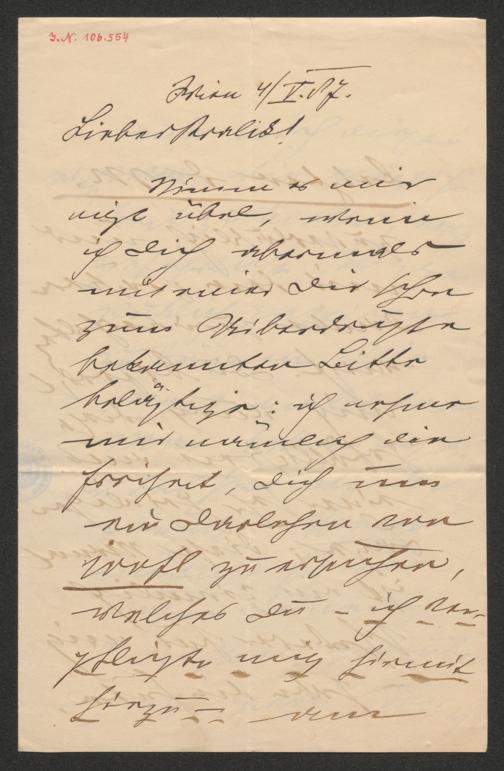 I.N. 106.554
Wien 4/V. 87.
Lieber Kralik!
Nimm es mir
nicht übel, wenn
ich Dich abermals
mit einer Dir schon
zum Überdrusse
bekannten Bitte
belästige: ich nehme
mir nämlich die
Freiheit, Dich um
ein Darlehen von
zu ersuchen,
welches Du – ich ver-
pflichte mich hiermit
hiezu – am